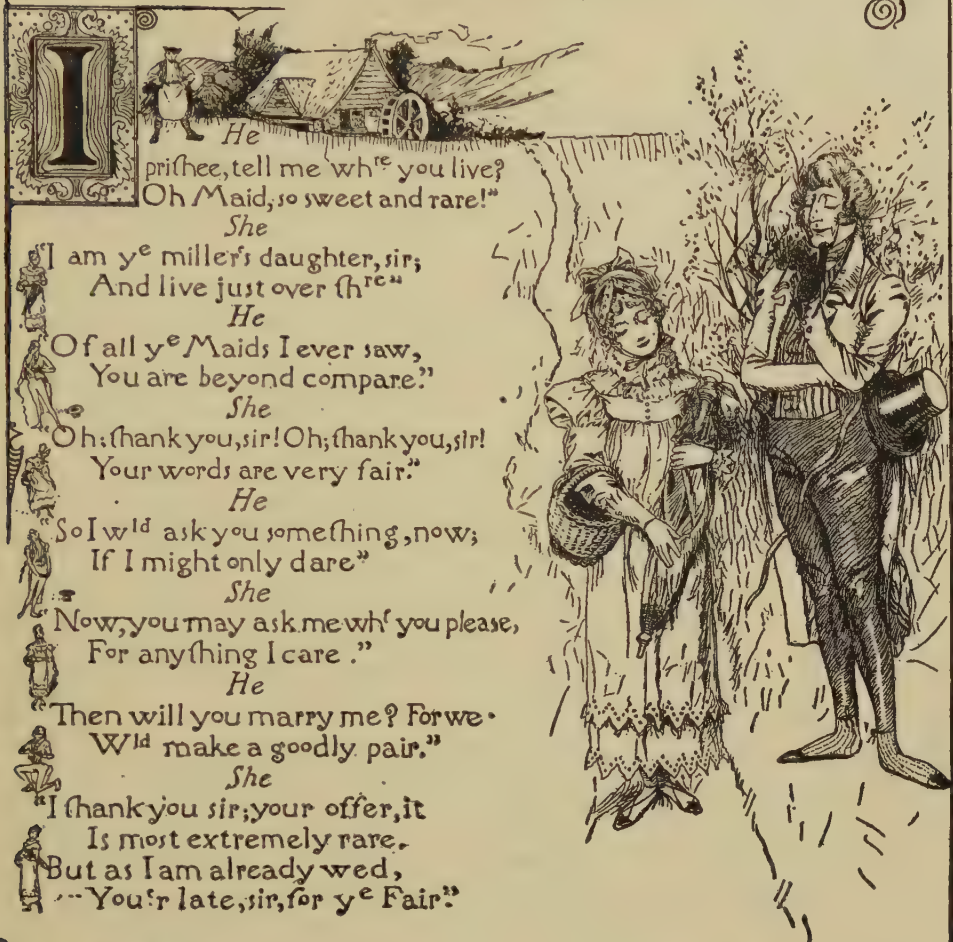 I
He
prithee, tell me whʳᵉ you live?
Oh Maid, so sweet and rare!"
She
"I am yᵉ miller's daughter, sir;
And live just over thʳᵉ"
He
"Of all yᵉ Maids I ever saw,
You are beyond compare."
She
Oh; thank you, sir! Oh; thank you, sir!
Your words are very fair."
He
So I wˡᵈ ask you something, now;
If I might only dare"
She
Now, you may ask me whᵗ you please,
For anything I care."
He
"Then will you marry me? For we
Wˡᵈ make a goodly pair."
She
"I thank you sir; your offer, it
Is most extremely rare.
But as I am already wed,
You'r late, sir, for yᵉ Fair."